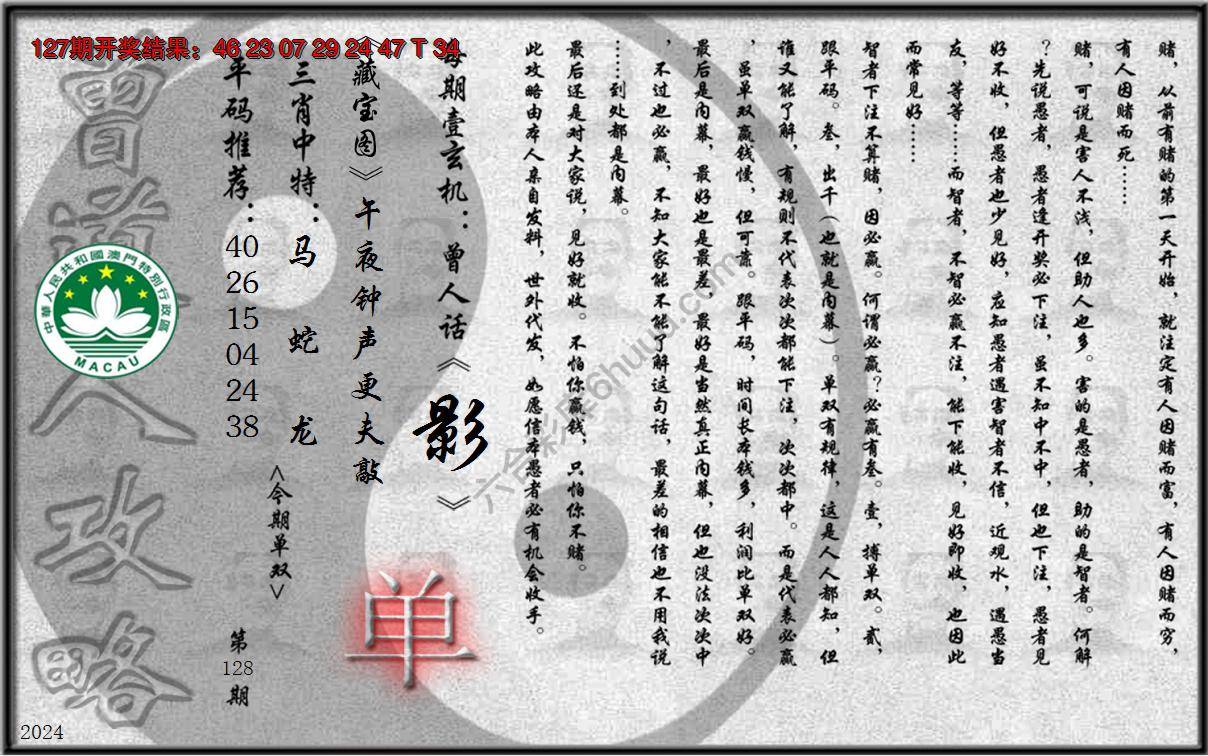 127期开奖结果：46 23 07 29 24 47 T 34
赌，从前有赌的第一天开始，就注定有人因赌而富，有人因赌而穷，
有人因赌而死……
赌，可说是害人不浅，但助人也多。害的是愚者，助的是智者。何解
？先说愚者，愚者逢开奖必下注，虽不知中不中，但也下注，愚者见
好不收，但愚者也少见好，应知愚者遇害智者不信，近观水，遇愚当
友，等等……而智者，不智必赢不注，能下能收，见好即收，也因此
而常见好……
智者下注不算赌，因必赢。何谓必赢？必赢有叁。壹，搏单双。贰，
跟平码。叁，出千（也就是内幕）。单双有规律，这是人人都知，但
谁又能了解，有规则不代表次次都能下注，次次都中。而是代表必赢
，虽单双赢钱慢，但可靠。跟平码，时间长本钱多，利润比单双好。
最后是内幕，最好也是最差，最好是当然真正内幕，但也没法次次中
，不过也必赢，不知大家能不能了解这句话，最差的相信也不用我说
……到处都是内幕。
最后还是对大家说，见好就收。不怕你赢钱，只怕你不赌。
此攻略由本人亲自发料，世外代发，如愿信本愚者必有机会收手。
每期壹玄机：曾人话《影》
《藏宝图》午夜钟声更夫敲
三肖中特：马 蛇 龙
<今期单双>
单
平码推荐：40 26 15 04 24 38
第128期
曾道人攻略
中華人民共和國澳門特別行政區
MACAU
六合彩库6huuu.com
2024